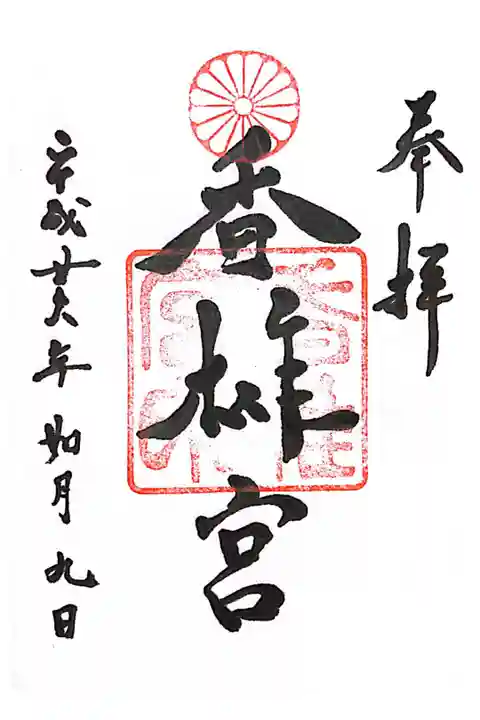 奉拝
香椎宮
平成廿六年 如月 九日